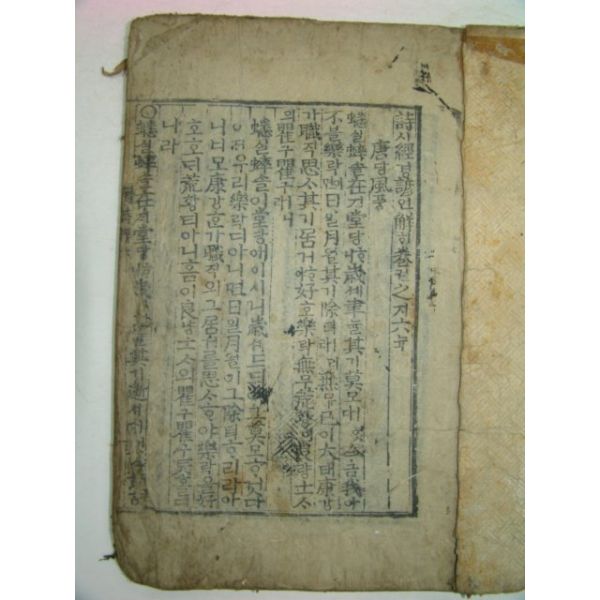 詩시經경諺언解ᄒᆡ卷권之지六뉵
唐당風풍
蟋실蟀솔在ᄌᆡ堂당ᄒᆞ니歲셰聿율其기莫모 今금我아
不블樂락면日일月월其기除 無무已이大태康강
가職직思ᄉᆞ其기居거ᄒᆞ야好호樂락無무荒황이良량士ᄉᆞ
의瞿구瞿구ㅣ니
蟋실蟀솔이堂당애이시니歲셰드듸 莫모ᄒᆞ 다
이 우리樂락디아니면日일月월이그除 ᄒᆞ리라아
니너모康강ᄒᆞᆫ가職직의그居거를思ᄉᆞᄒᆞ야樂락을好
호호ᄃᆡ荒황티아니홈이良냥士ᄉᆞ의瞿구瞿구
니라
○蟋실蟀솔在ᄌᆡ堂당ᄒᆞ니 其기逝셰